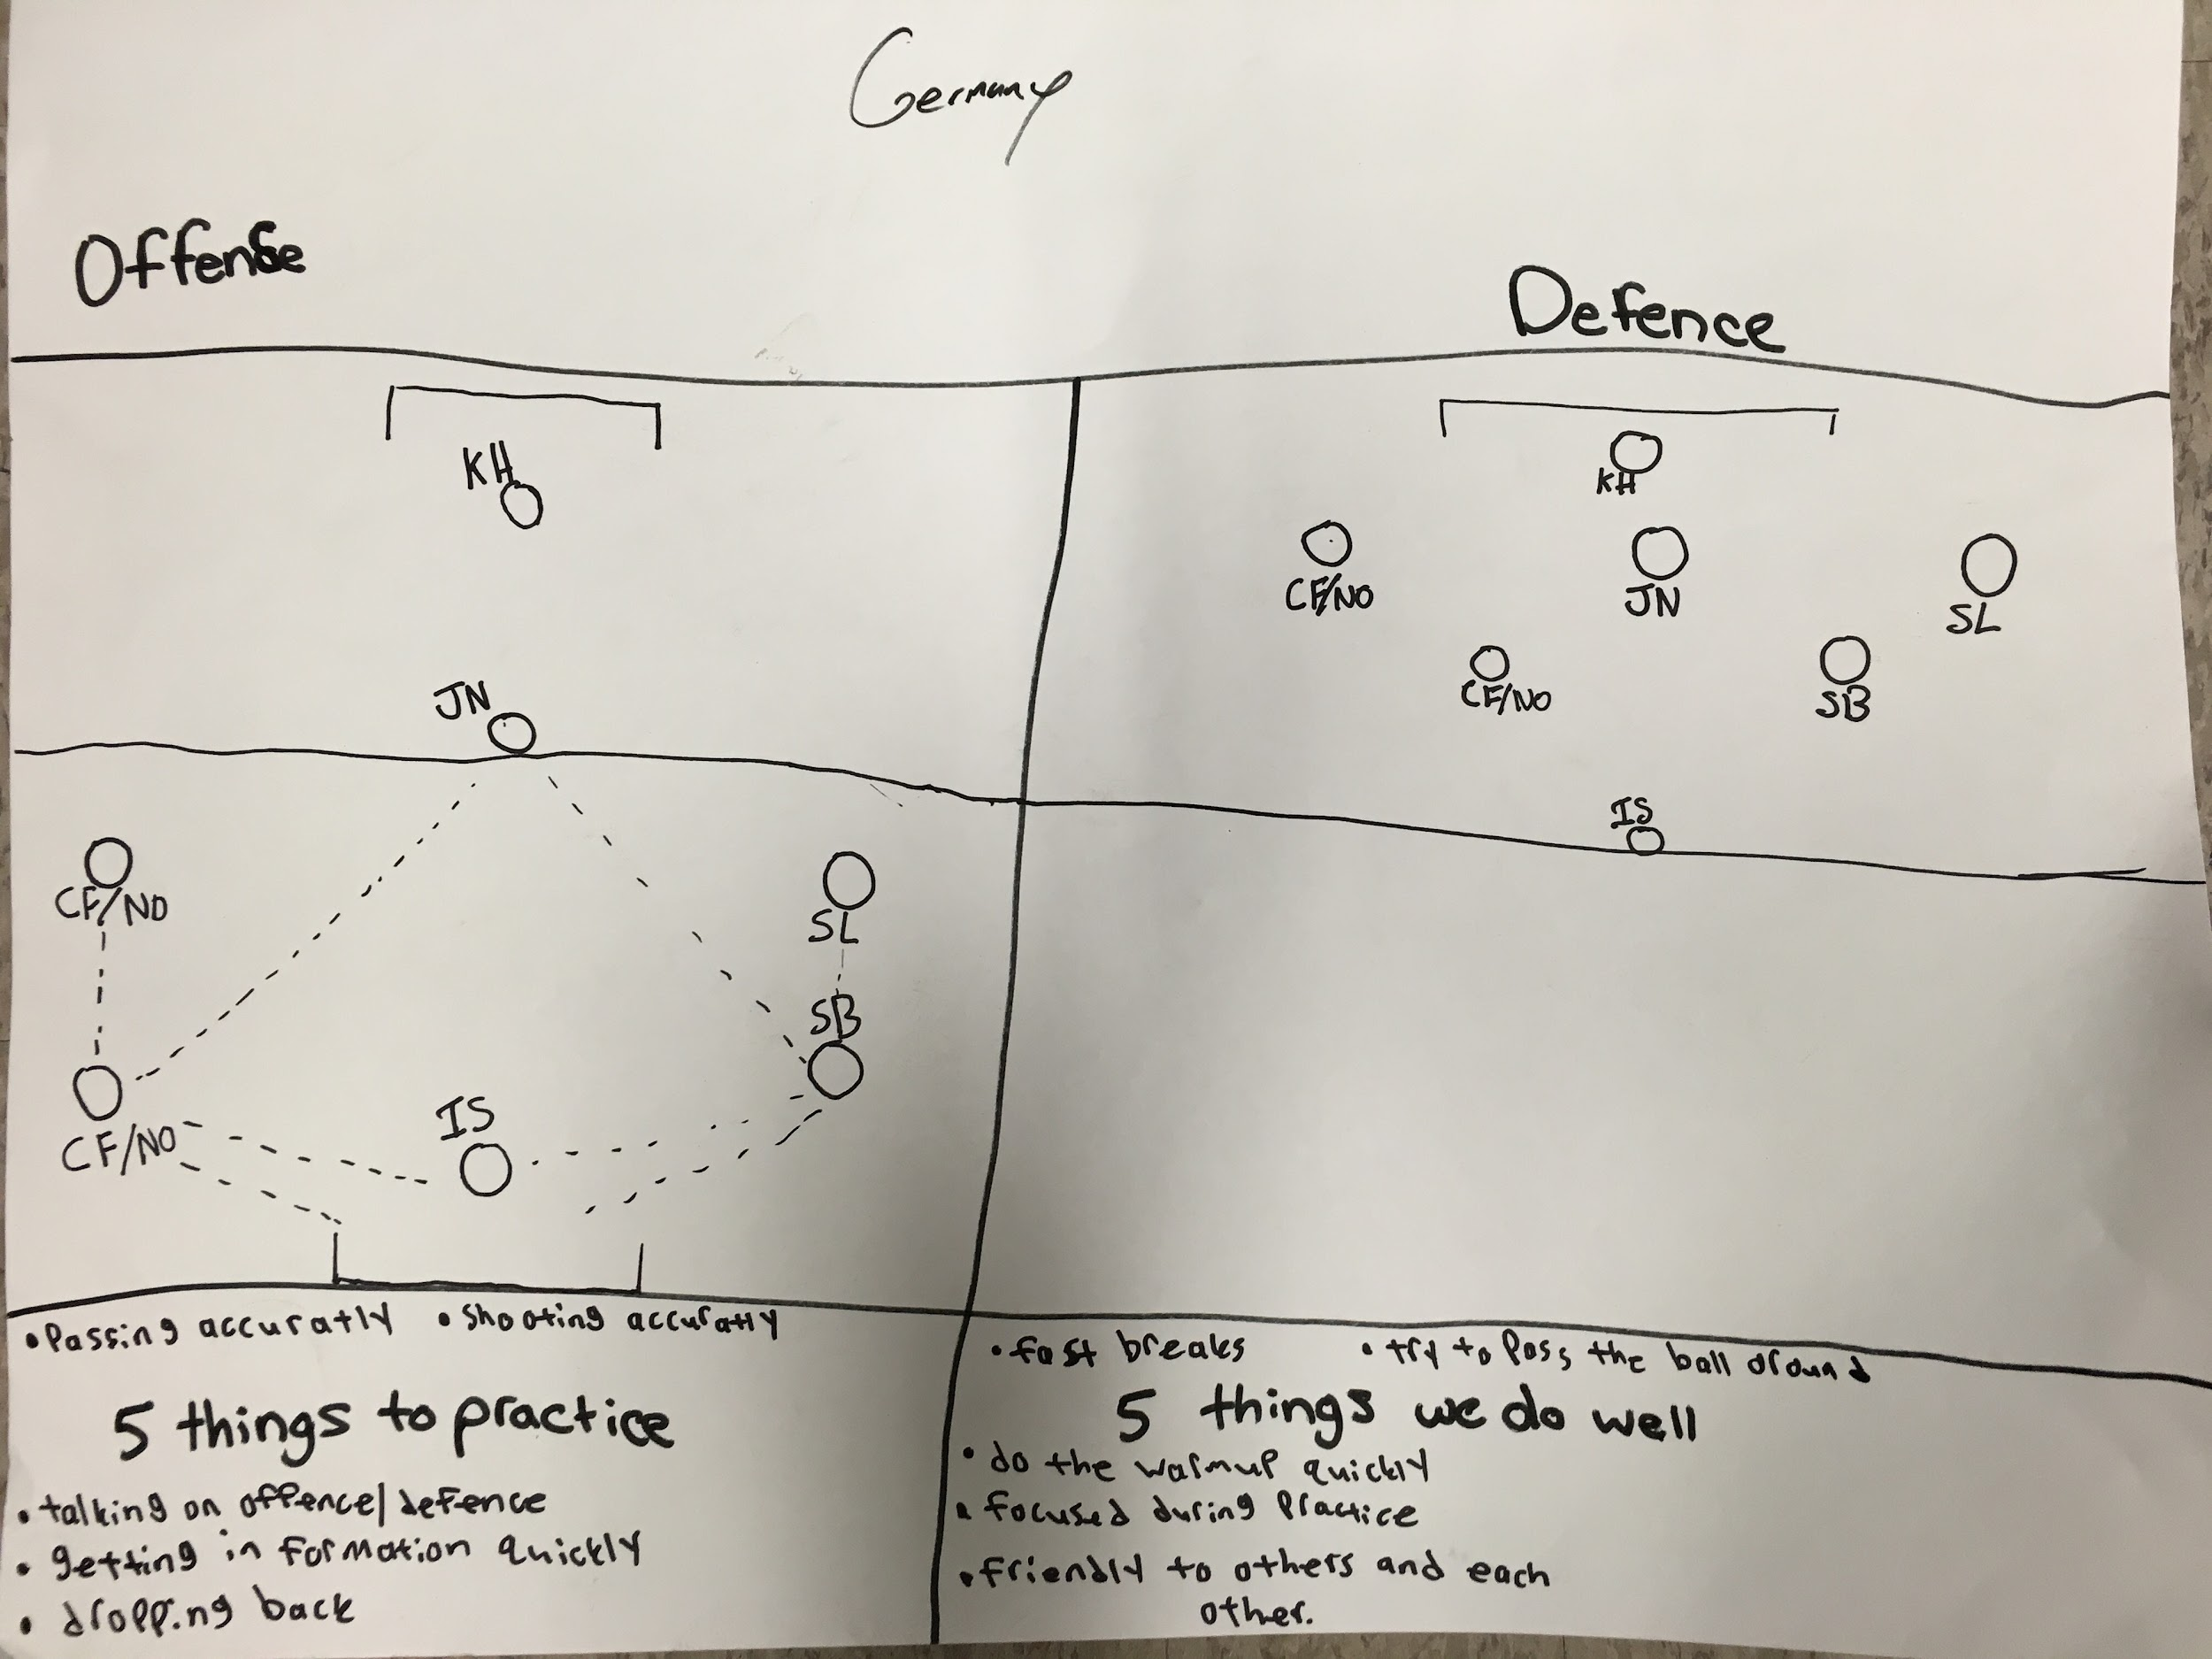 Germany
Offense
Defence
KH
JN
CF/NO
SL
SB
CF/NO
IS
KH
CF/NO
JN
SL
CF/NO
SB
IS
• Passing accuratly • shooting accuratly
5 things to practice
• talking on offence/defence
• getting in formation quickly
• dropping back
• fast breaks • try to Pass the ball around
5 things we do well
• do the warmup quickly
• focused during Practice
• friendly to others and each
other.